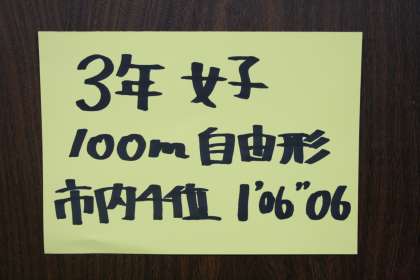 3年 女子
100m 自由形
市内4位 1'06"06